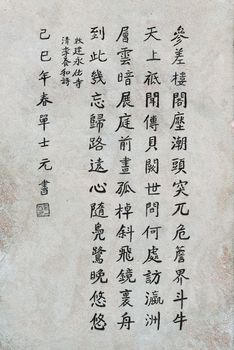 參差樓閣壓潮頭突兀危簷界斗牛
天上祇聞傳貝闕世間何處訪瀛洲
層雲暗展庭前畫孤棹斜飛鏡裏舟
到此幾忘歸路遠心隨鳧鷺晚悠悠
敕建永佑寺
清李養和詩
己巳年春單士元書